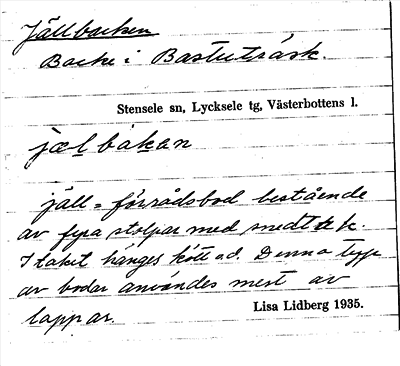 Jällbacken
Backe i Bastuträsk.
Stensele sn, Lycksele tg, Västerbottens l.
jælbakan
jäll = förrådsbod bestående
av fyra stolpar med snedtak.
I taket hänges kött o d. Denna typ
av bodar användes mest av
lappar.
Lisa Lidberg 1935.